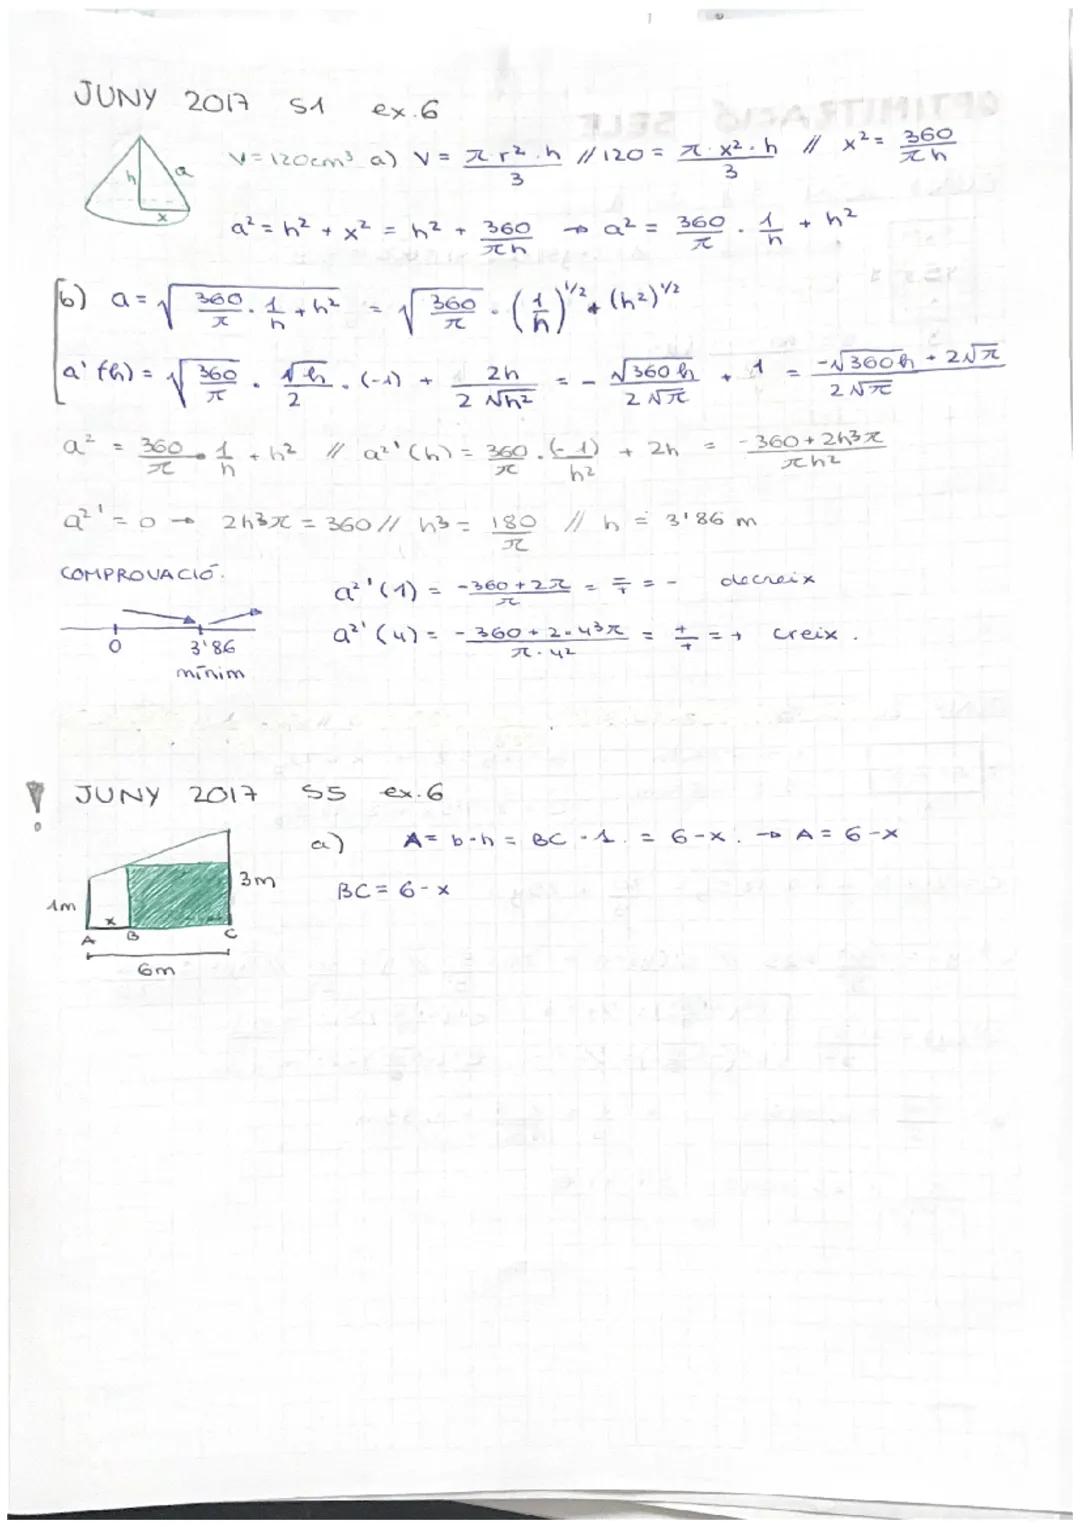 JUNY 2017 S1 ex.6
V=120cm³ a) V = π·r²·h/3 // 120 = π·x²·h/3 // x² = 360/πh
h a x
a² = h² + x² = h² + 360/πh → a² = 360/π · 1/h + h²
b) a = √(360/π · 1/h + h²) = √(360/π) · (1/h)^1/2 + (h²)^1/2
a'(h) = √(360/π) · √h/2 · (-1) + 2h/2√h² = - √360h/2√π + 1 = -√360h + 2√π/2√π
a² = 360/π · 1/h + h² // a²'(h) = 360/π · (-1)/h² + 2h = -360+2h³π/πh²
a²' = 0 → 2h³π = 360 // h³ = 180/π // h = 3'86 m
COMPROVACIÓ.
a²'(1) = -360+2π/π = -/+ = - decreix
0 3'86
mínim
a²'(4) = -360+2·4³π/π·4² = +/+ = + creix.
! JUNY 2017 S5 ex.6
a) A= b·h = BC·1. = 6-x. → A= 6-x
BC= 6-x
1m x 3m
A B C
6m